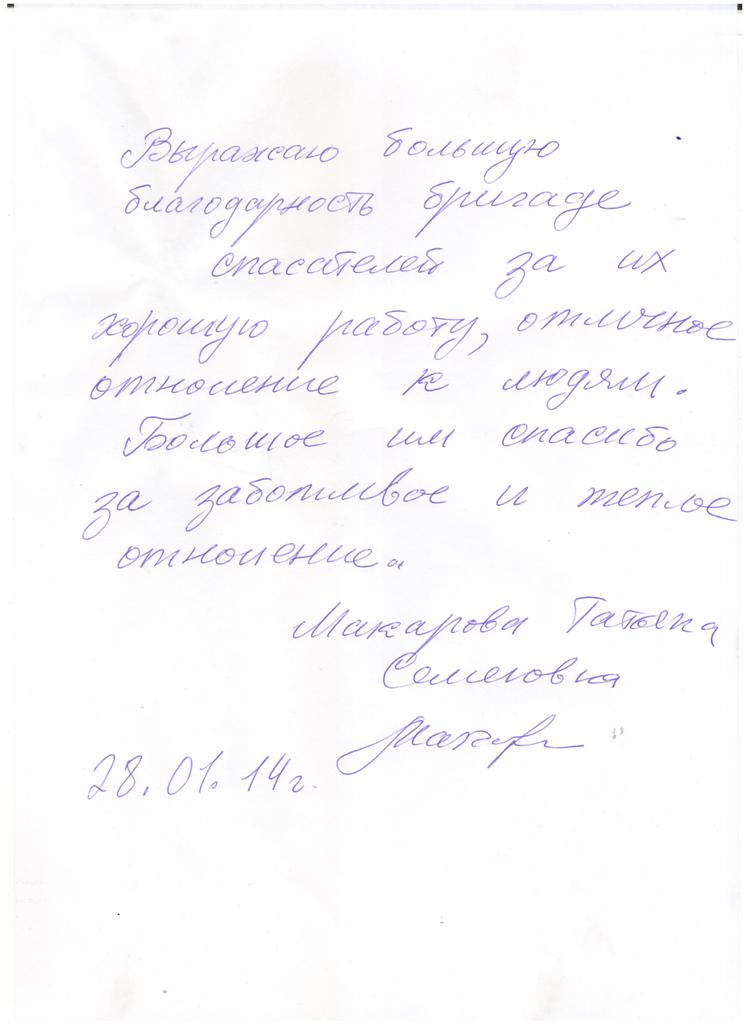 Выражаю большую
благодарность бригаде
спасателей за их
хорошую работу, отличное
отношение к людям.
Большое им спасибо
за заботливое и теплое
отношение.
Макарова Татьяна
Семеновна
28.01.14г.